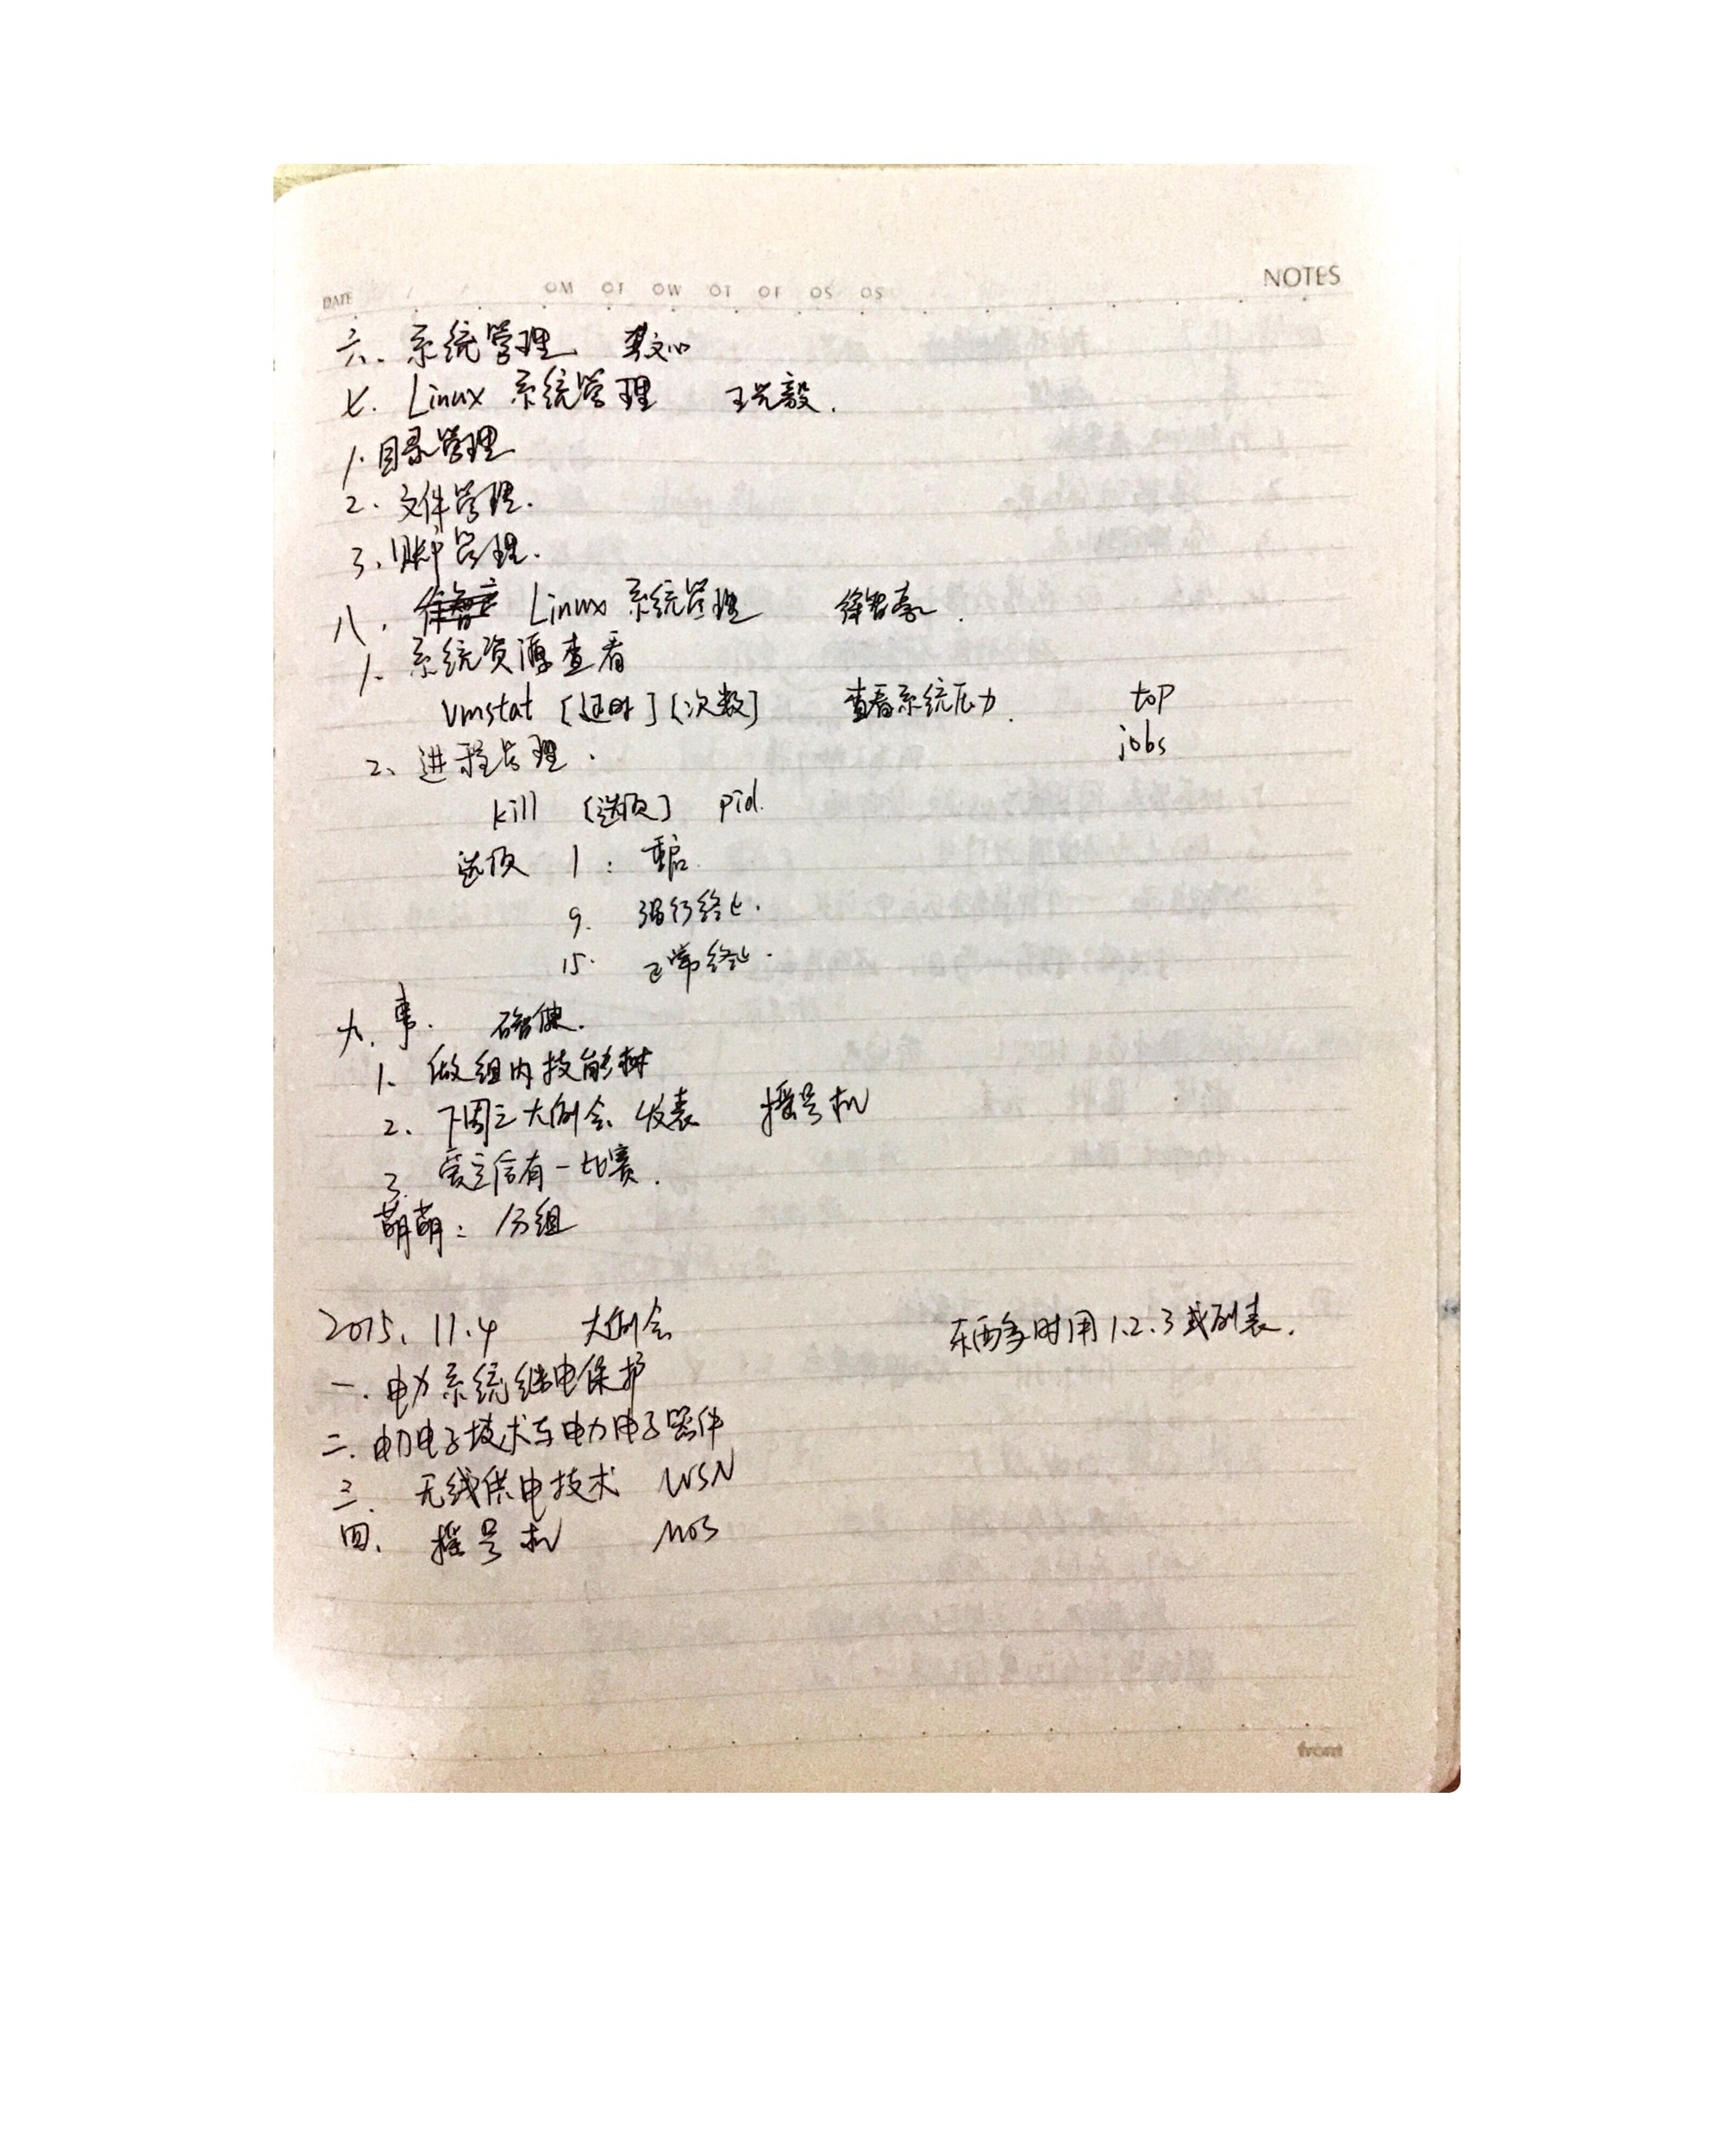 NOTES
DATE
六. 系统管理
七. Linux 系统管理 王光毅.
1. 目录管理
2. 文件管理.
3. 账户管理.
八. Linux 系统管理 徐智豪.
1. 系统资源查看
vmstat [延时] [次数] 查看系统压力. top
jobs
2、进程管理.
kill [选项] pid.
选项 1: 重启.
9. 强行终止.
15. 正常终止.
九. 事.
1. 做组内技能树
2. 下周三大例会 发表 摇号机
3. 有一比赛.
萌萌: 分组
2015. 11.4 大例会 东西多时用1.2.3或列表.
一. 电力系统继电保护
二. 电力电子技术与电力电子器件
三. 无线供电技术 WSN
四. 摇号机 MOS
from